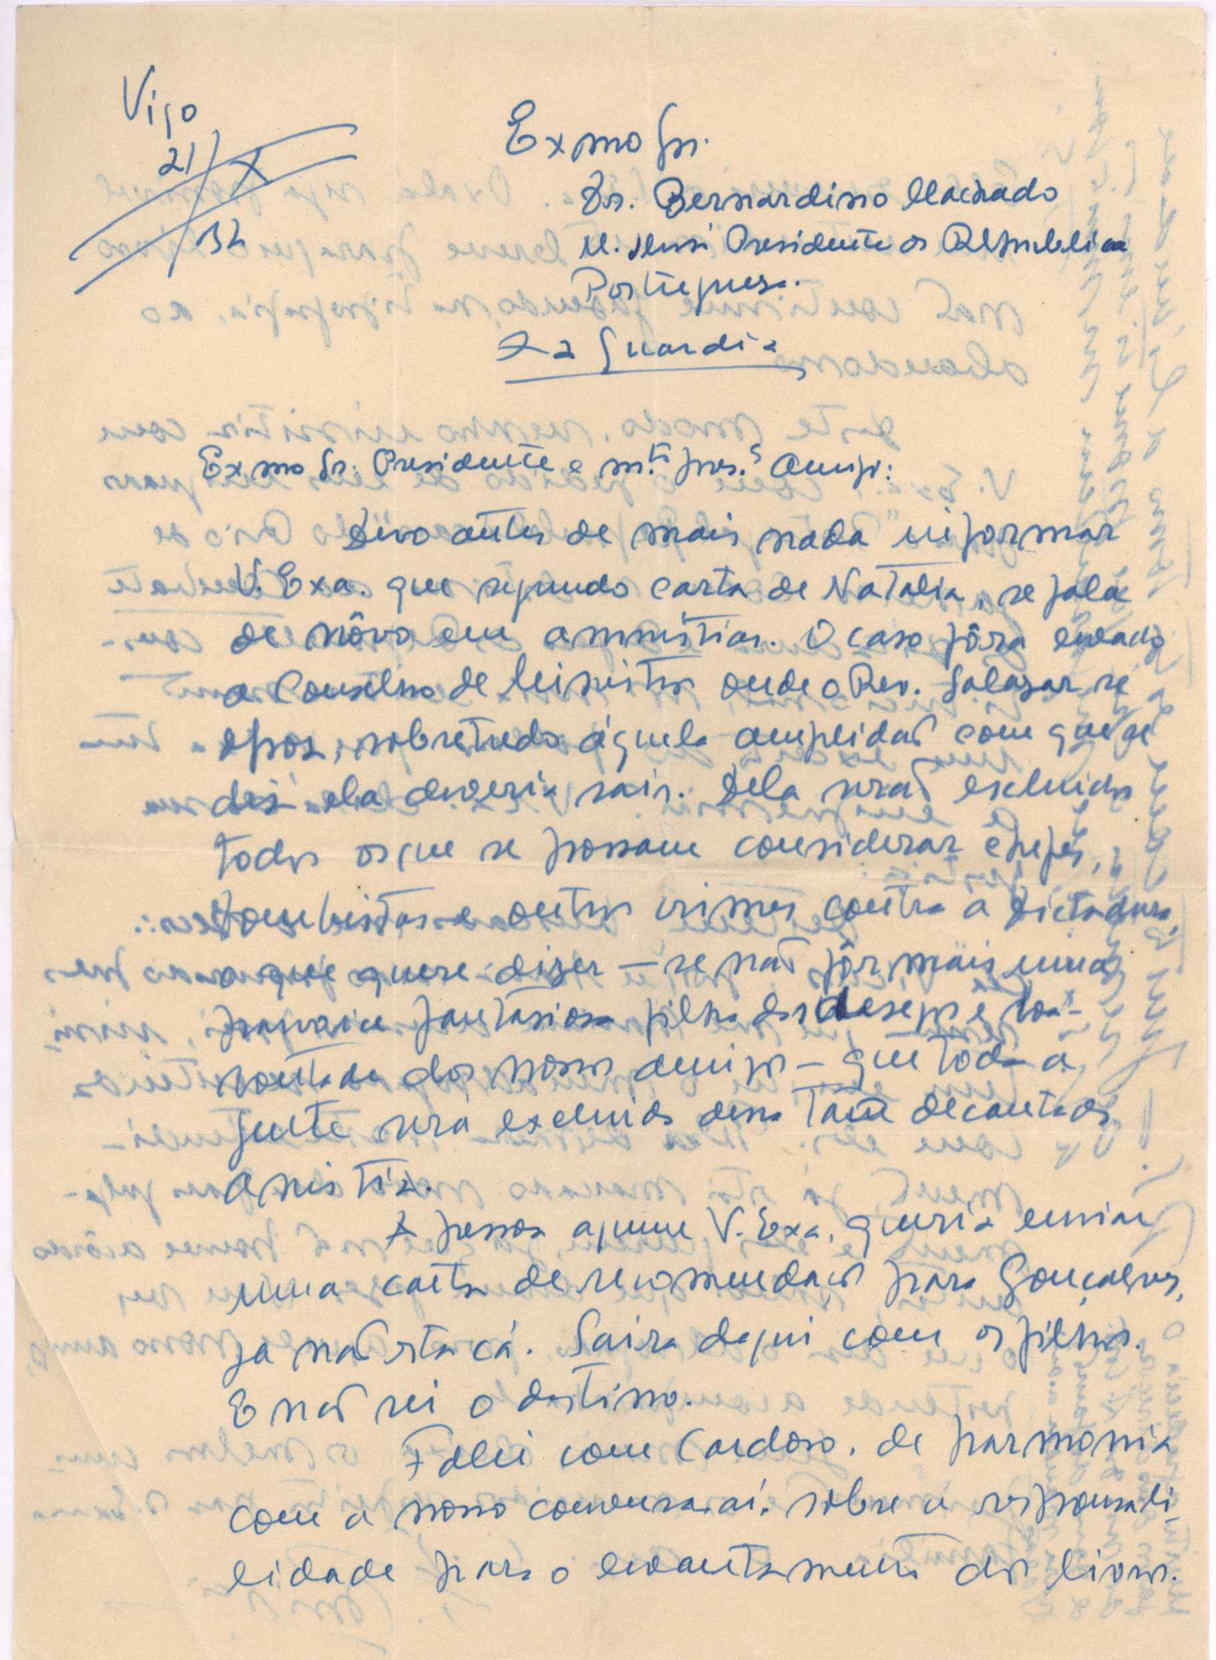 Vigo
21/X
32
Exmo Sr.
Dr. Bernardino Machado
M. Presidente da Republica
Portuguesa.
La Guardia
Exmo Sr. Presidente e m.to pres.o Amigo:
Devo antes de mais nada informar
V. Exa. que segundo carta de Natalia, se fala
de nôvo em amnistias. O caso fôra levado
a Conselho de Ministros onde o Rev. Salazar se
opoz, sobretudo áquela amplidaõ com que se
diz ela deveria sair. Dela seraõ excluidos
todos os que se possam considerar chefes,
bombistas e outros crimes contra a Dictadura,
o que quere dizer — se naõ fôr mais uma
fantasiosa filha dos desejos e boa
vontade dos nossos amigos — que toda a
gente sera excluida dessa taõ decantada
amistia.
A pessoa a quem V. Exa. queria enviar
uma carta de recomendaçaõ para Gonçalves,
ja naõ sta cá. Saira daqui com os filhos.
E naõ sei o destino.
Falei com Cardoso, de harmonia
com a nossa conversa, sobre a responsabi
lidade para o levantamento dos livros.